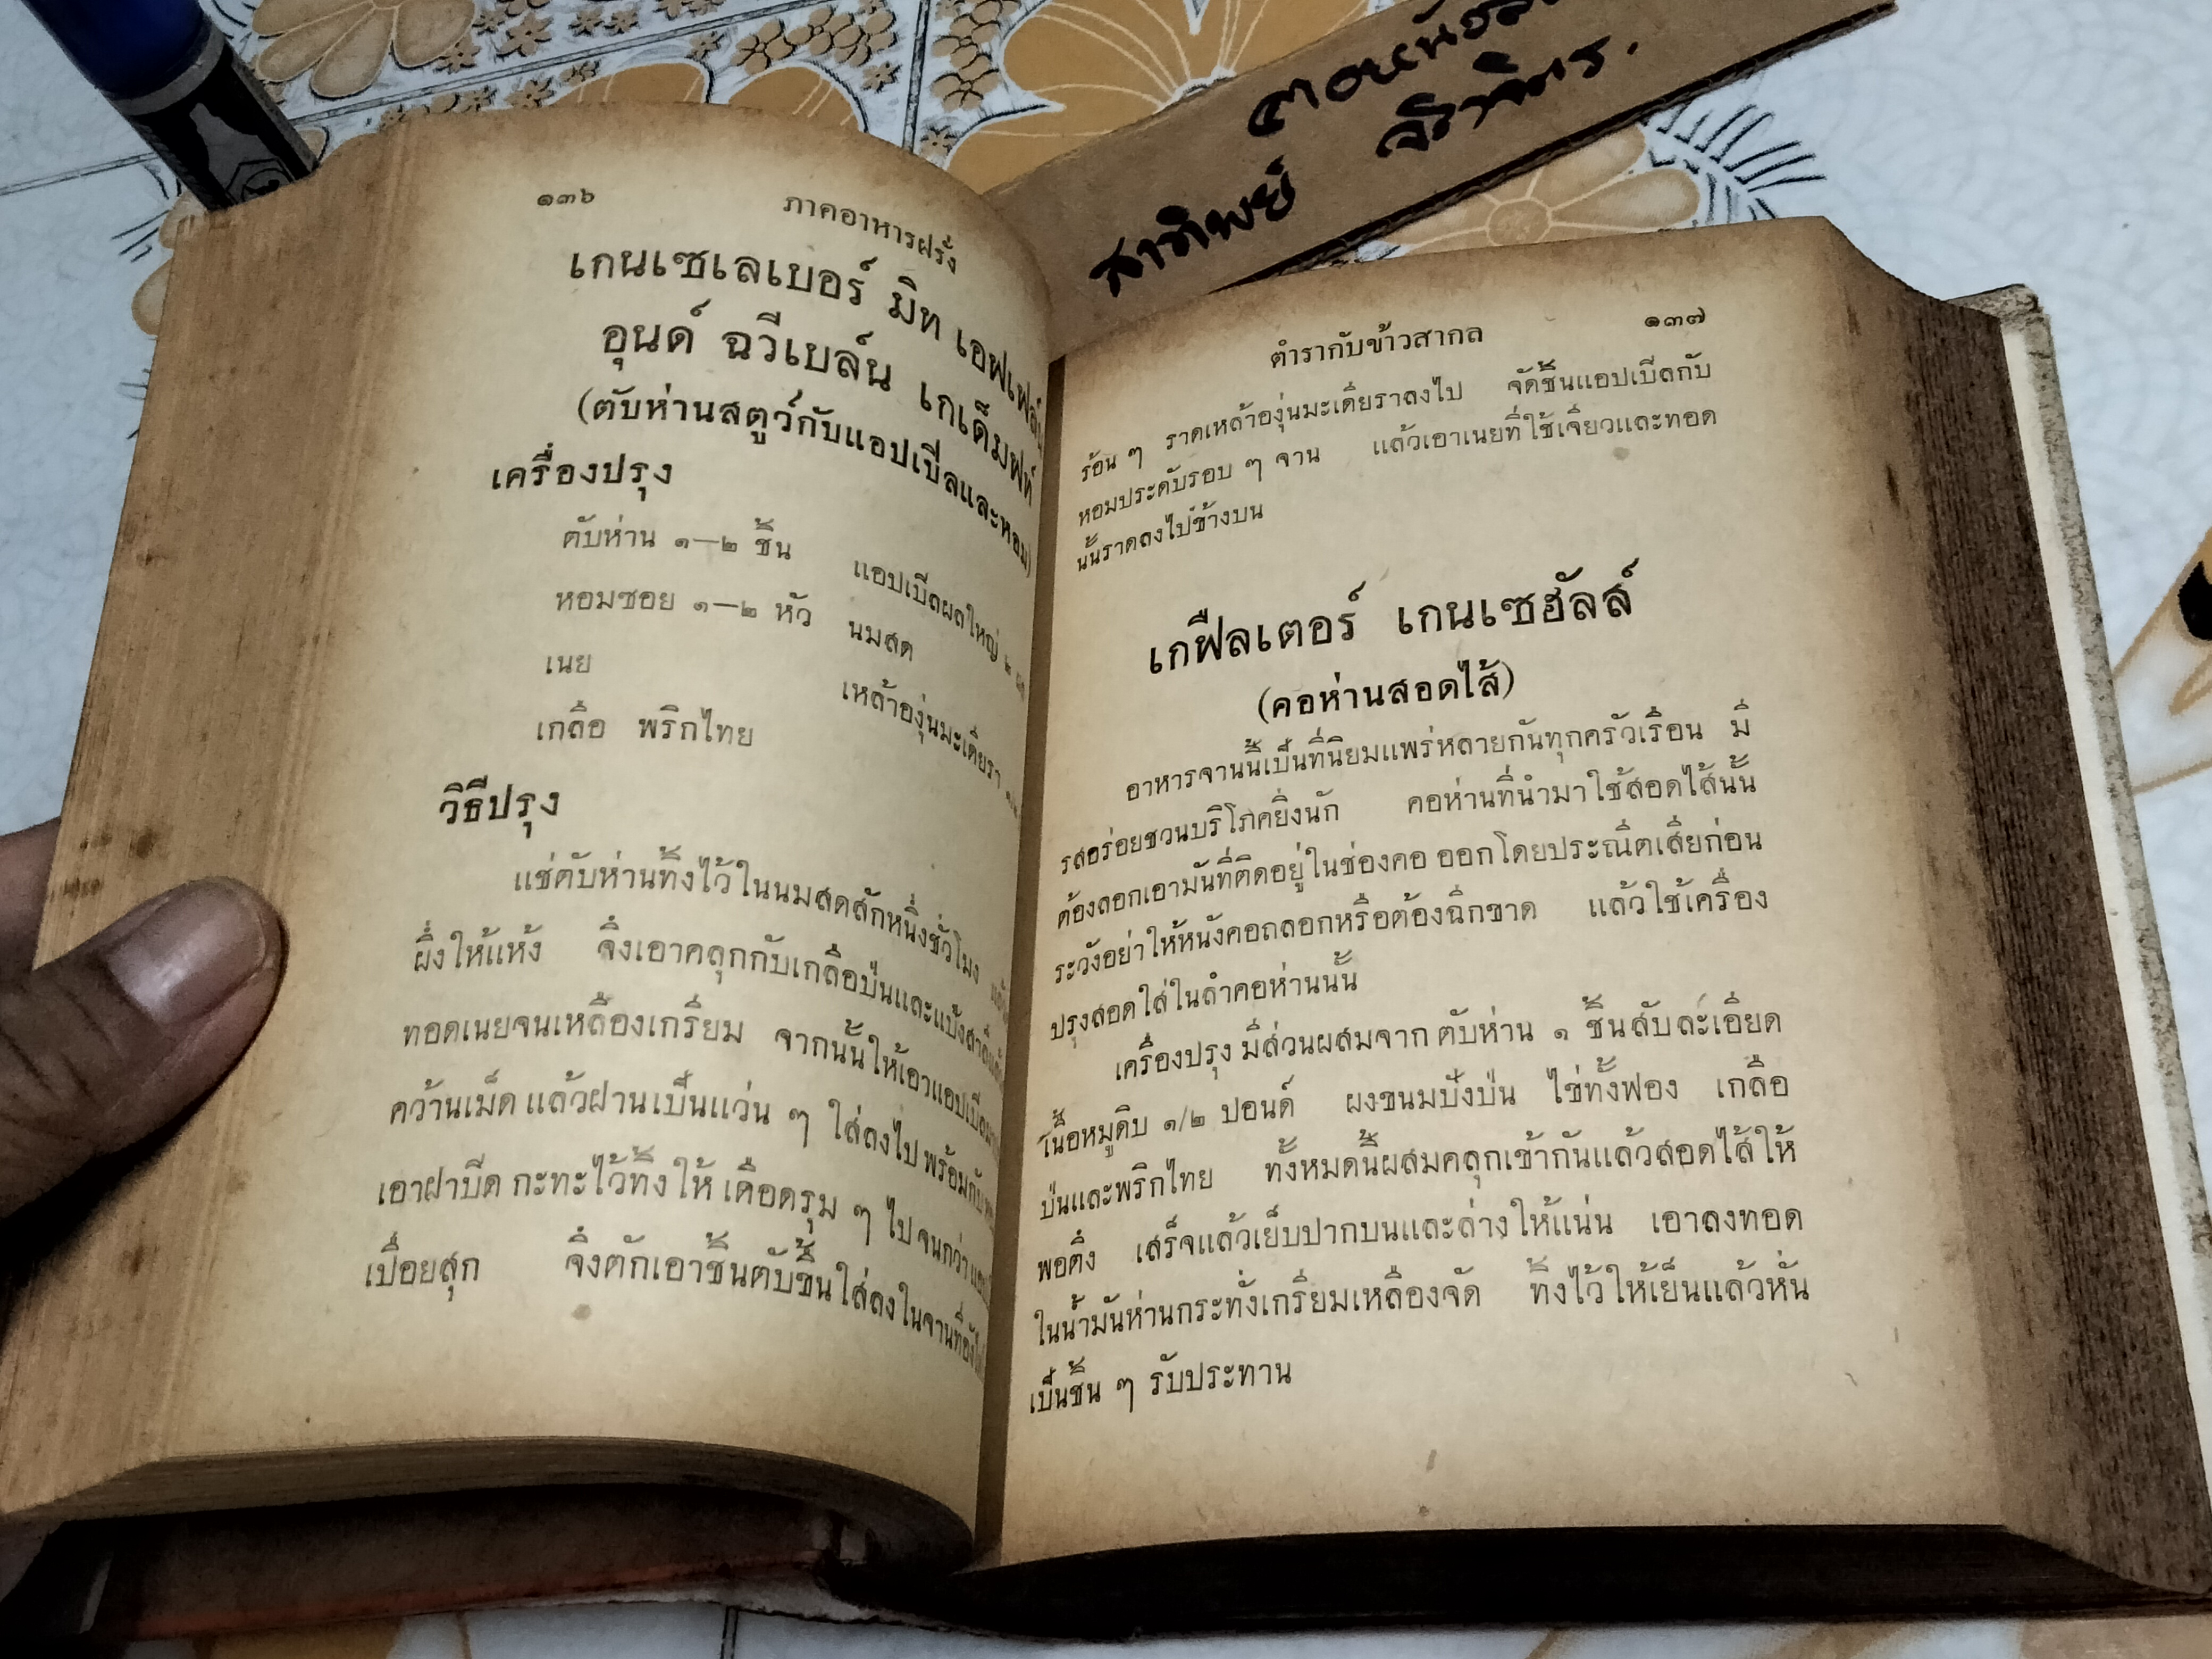 สาทิพย์ จิราจิตร.
๑๓๖ ภาคอาหารฝรั่ง
เกนเซเลเบอร์ มิท เอฟเฟล์น
อุนด์ ฉวีเบล์น เกเด็มฟท์
(ตับห่านสตูว์กับแอปเปิลและหอม)
เครื่องปรุง
ตับห่าน ๑—๒ ชิ้น แอปเปิลผลใหญ่ ๒ ผล
หอมซอย ๑—๒ หัว นมสด
เนย เหล้าองุ่นมะเดียรา
เกลือ พริกไทย
วิธีปรุง
แช่ตับห่านทิ้งไว้ในนมสดสักหนึ่งชั่วโมง แล้ว
ผึ่งให้แห้ง จึงเอาคลุกกับเกลือป่นและแป้งสาลีแล้ว
ทอดเนยจนเหลืองเกรียม จากนั้นให้เอาแอปเปิล
คว้านเม็ด แล้วฝานเป็นแว่น ๆ ใส่ลงไป พร้อมกับ
เอาฝาปิด กะทะไว้ทิ้งให้ เดือดรุม ๆ ไป จนกว่า
เปื่อยสุก จึงตักเอาชิ้นตับขึ้นใส่ลงในจานที่ยัง
ตำรากับข้าวสากล ๑๓๗
ร้อน ๆ ราดเหล้าองุ่นมะเดียราลงไป จัดชิ้นแอปเปิลกับ
หอมประดับรอบ ๆ จาน แล้วเอาเนยที่ใช้เจียวและทอด
นั้นราดลงไปข้างบน
เกฟืลเตอร์ เกนเซฮัลส์
(คอห่านสอดไส้)
อาหารจานนี้เป็นที่นิยมแพร่หลายกันทุกครัวเรือน มี
รสอร่อยชวนบริโภคยิ่งนัก คอห่านที่นำมาใช้สอดไส้นั้น
ต้องลอกเอามันที่ติดอยู่ในช่องคอ ออกโดยประณีตเสียก่อน
ระวังอย่าให้หนังคอถลอกหรือต้องฉีกขาด แล้วใช้เครื่อง
ปรุงสอดใส่ในลำคอห่านนั้น
เครื่องปรุง มีส่วนผสมจาก ตับห่าน ๑ ชิ้นสับละเอียด
เนื้อหมูดิบ ๑/๒ ปอนด์ ผงขนมปังป่น ไข่ทั้งฟอง เกลือ
ป่นและพริกไทย ทั้งหมดนี้ผสมคลุกเข้ากันแล้วสอดไส้ให้
พอตึง เสร็จแล้วเย็บปากบนและล่างให้แน่น เอาลงทอด
ในน้ำมันห่านกระทั่งเกรียมเหลืองจัด ทิ้งไว้ให้เย็นแล้วหั่น
เป็นชิ้น ๆ รับประทาน